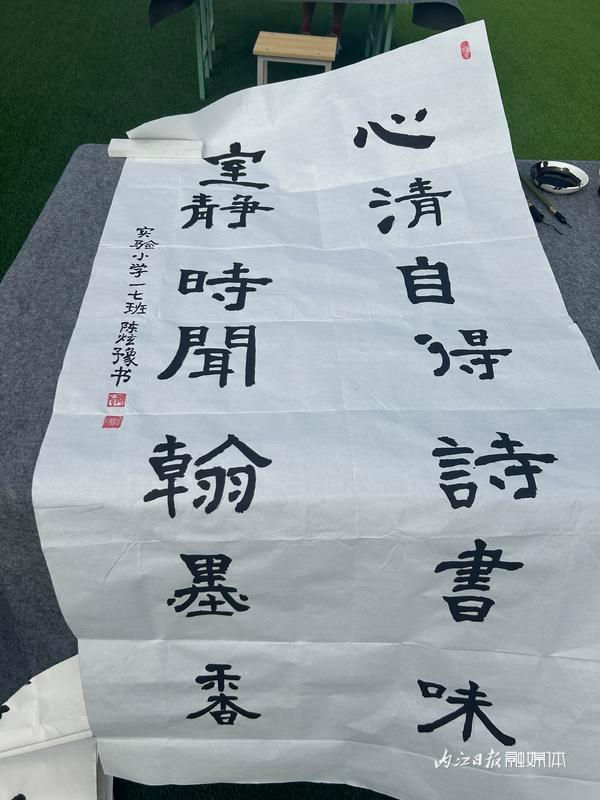 心清自得詩書味
室静時聞翰墨香
实验小学一七班 陈炫豫书
内江日报融媒体